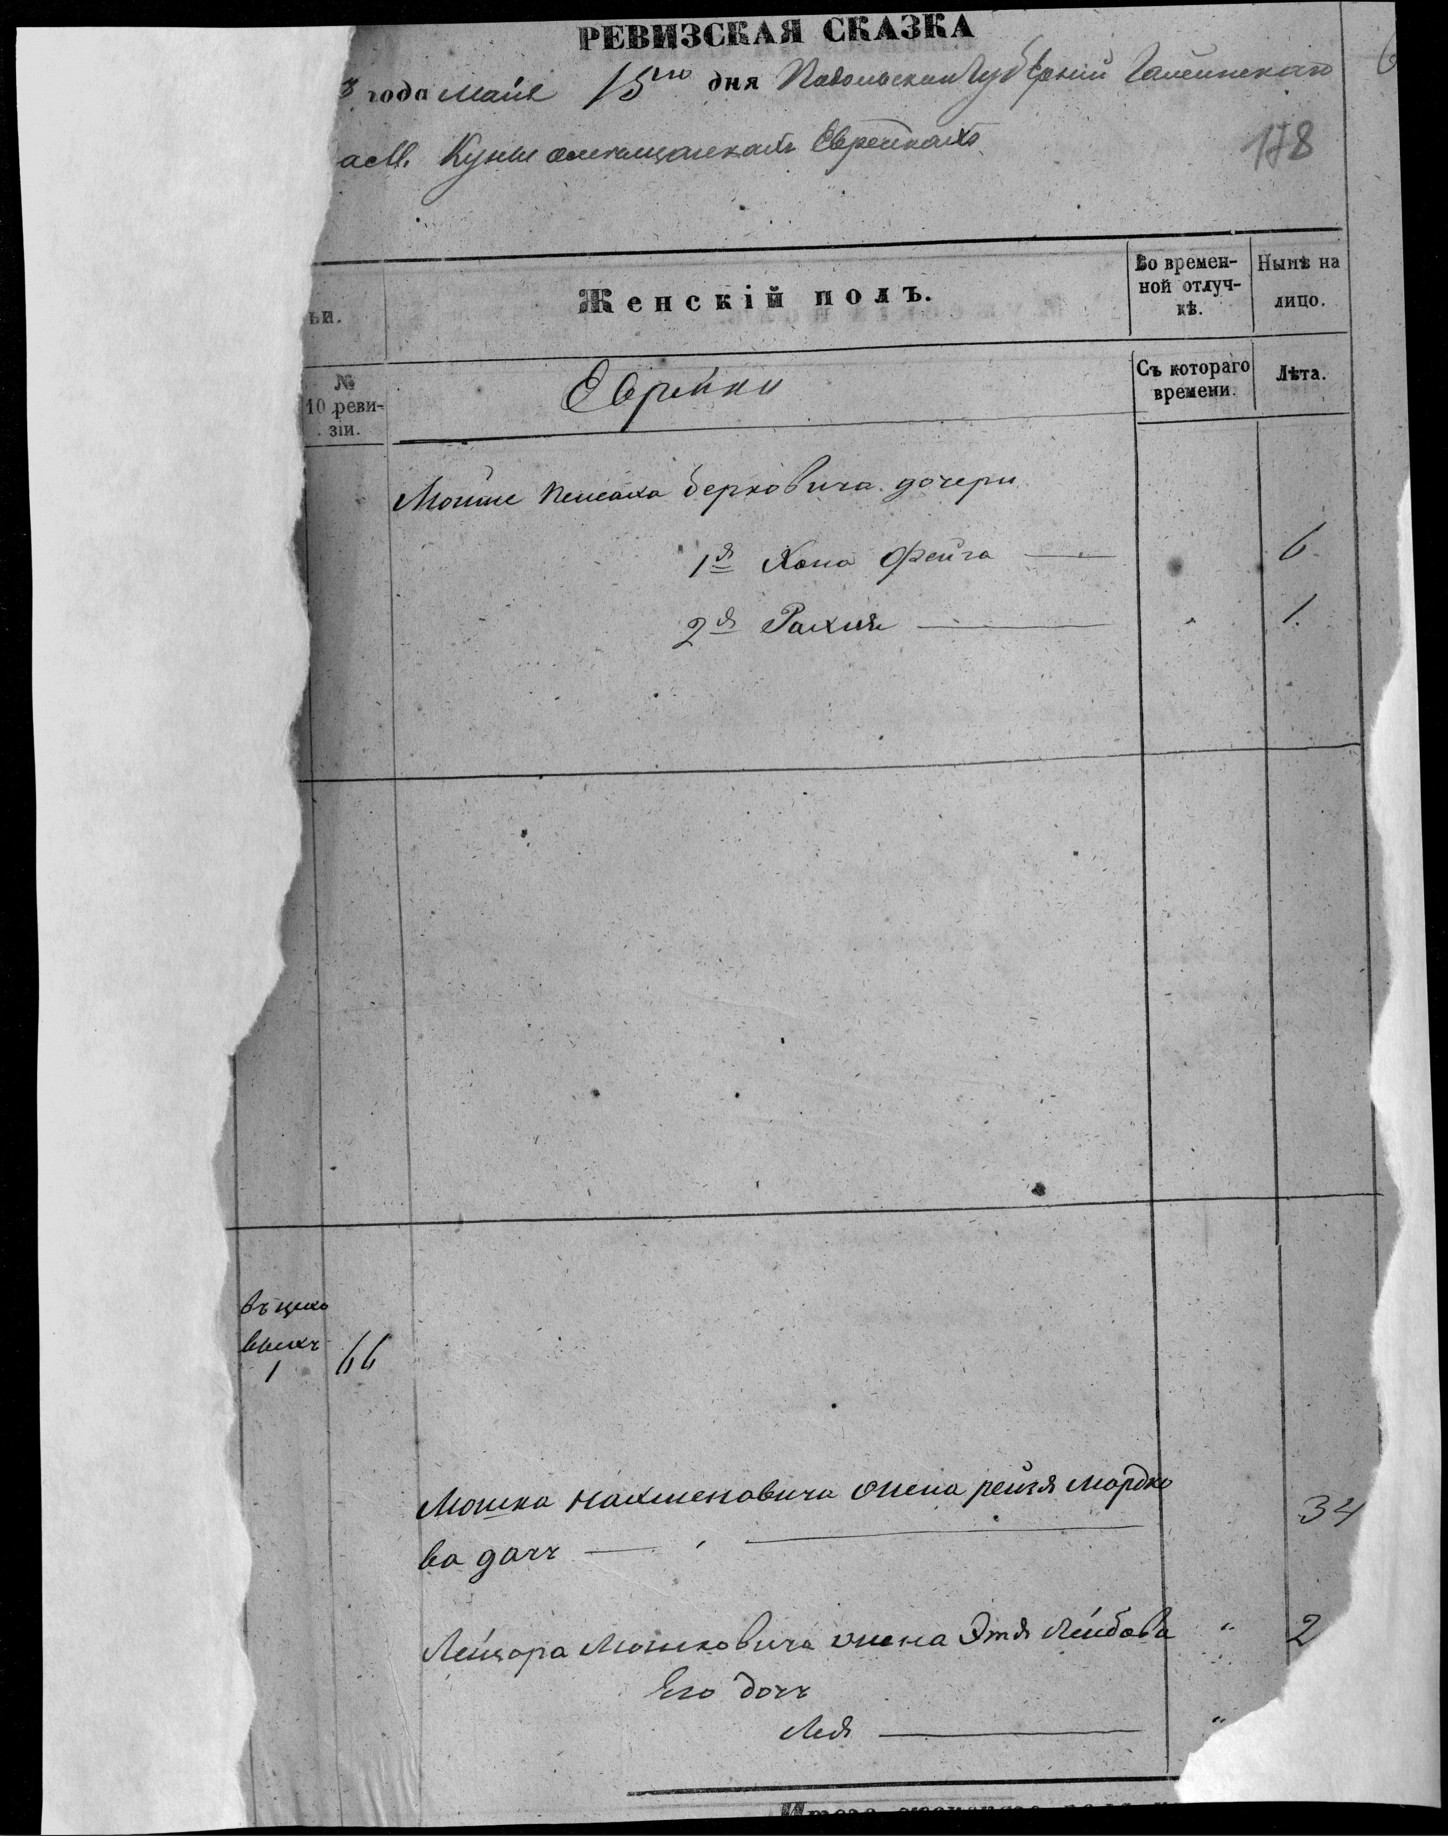 РЕВИЗСКАЯ СКАЗКА
года Мая 15го дня Подольской Губерніи Гайсинскаго
6
ам. Куны Евреяхъ
178
ьи.
Женскій полъ.
Во времен-
ной отлуч-
кѣ.
Нынѣ на
лицо.
№
10 реви-
зіи.
Еврейки
Съ котораго
времени.
Лѣта.
Мошне Пейсаха Берковича дочери
1я Хана Фейга 6
2я Рахля 1.
въ цехо
выхъ
1 66
Мошка Нахменовича жена рейзя Мордко
ва дочъ 34
Лейзора Мошковича жена Этя Лейбова " 2
Его дочъ "
Лея "
Итого женскаго пола